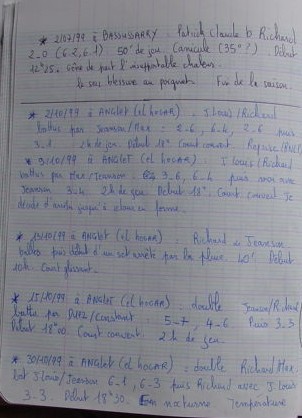 * 2/07/99 à BASSUSSARRY. Patrick Claude b. Richard
2-0 (6-2, 6-1) 50' de jeu. Canicule (35°?). Début
12h25. de jeu dû à l'insupportable chaleur.
blessure au poignet. Fin de la saison.
* 2/10/99 à ANGLET (el hogar). J. Louis/Richard
battus par Jeanson/Max : 2-6, 6-4, 2-6 puis
3-1. 2h de jeu. Début 18h. Court couvert. Reprise
* 9/10/99 à ANGLET (el hogar). J. Louis/Richard
battus par Max/Jeanson. 3-6, 6-4 puis avec
Jeanson 3-4. 2h de jeu. Début 18h. Court couvert. Je
décide d'arrêter jusqu'à
* 13/10/99 à ANGLET (el hogar) Richard
balles puis début d'un set arrêté par la pluie. 40'. Début
10h. Court glissant.
* 15/10/99 à ANGLET (el hogar) : double Jeanson/Richard
battu par /Constant 5-7, 4-6 Puis 3-3
Début 18h00. Court couvert. 2h de jeu.
* 30/10/99 à ANGLET (el hogar) : double Richard/Max
bat J. Louis/Jeanson 6-1, 6-3 puis Richard avec J. Louis
3-3. Début 18h30. En nocturne. Température